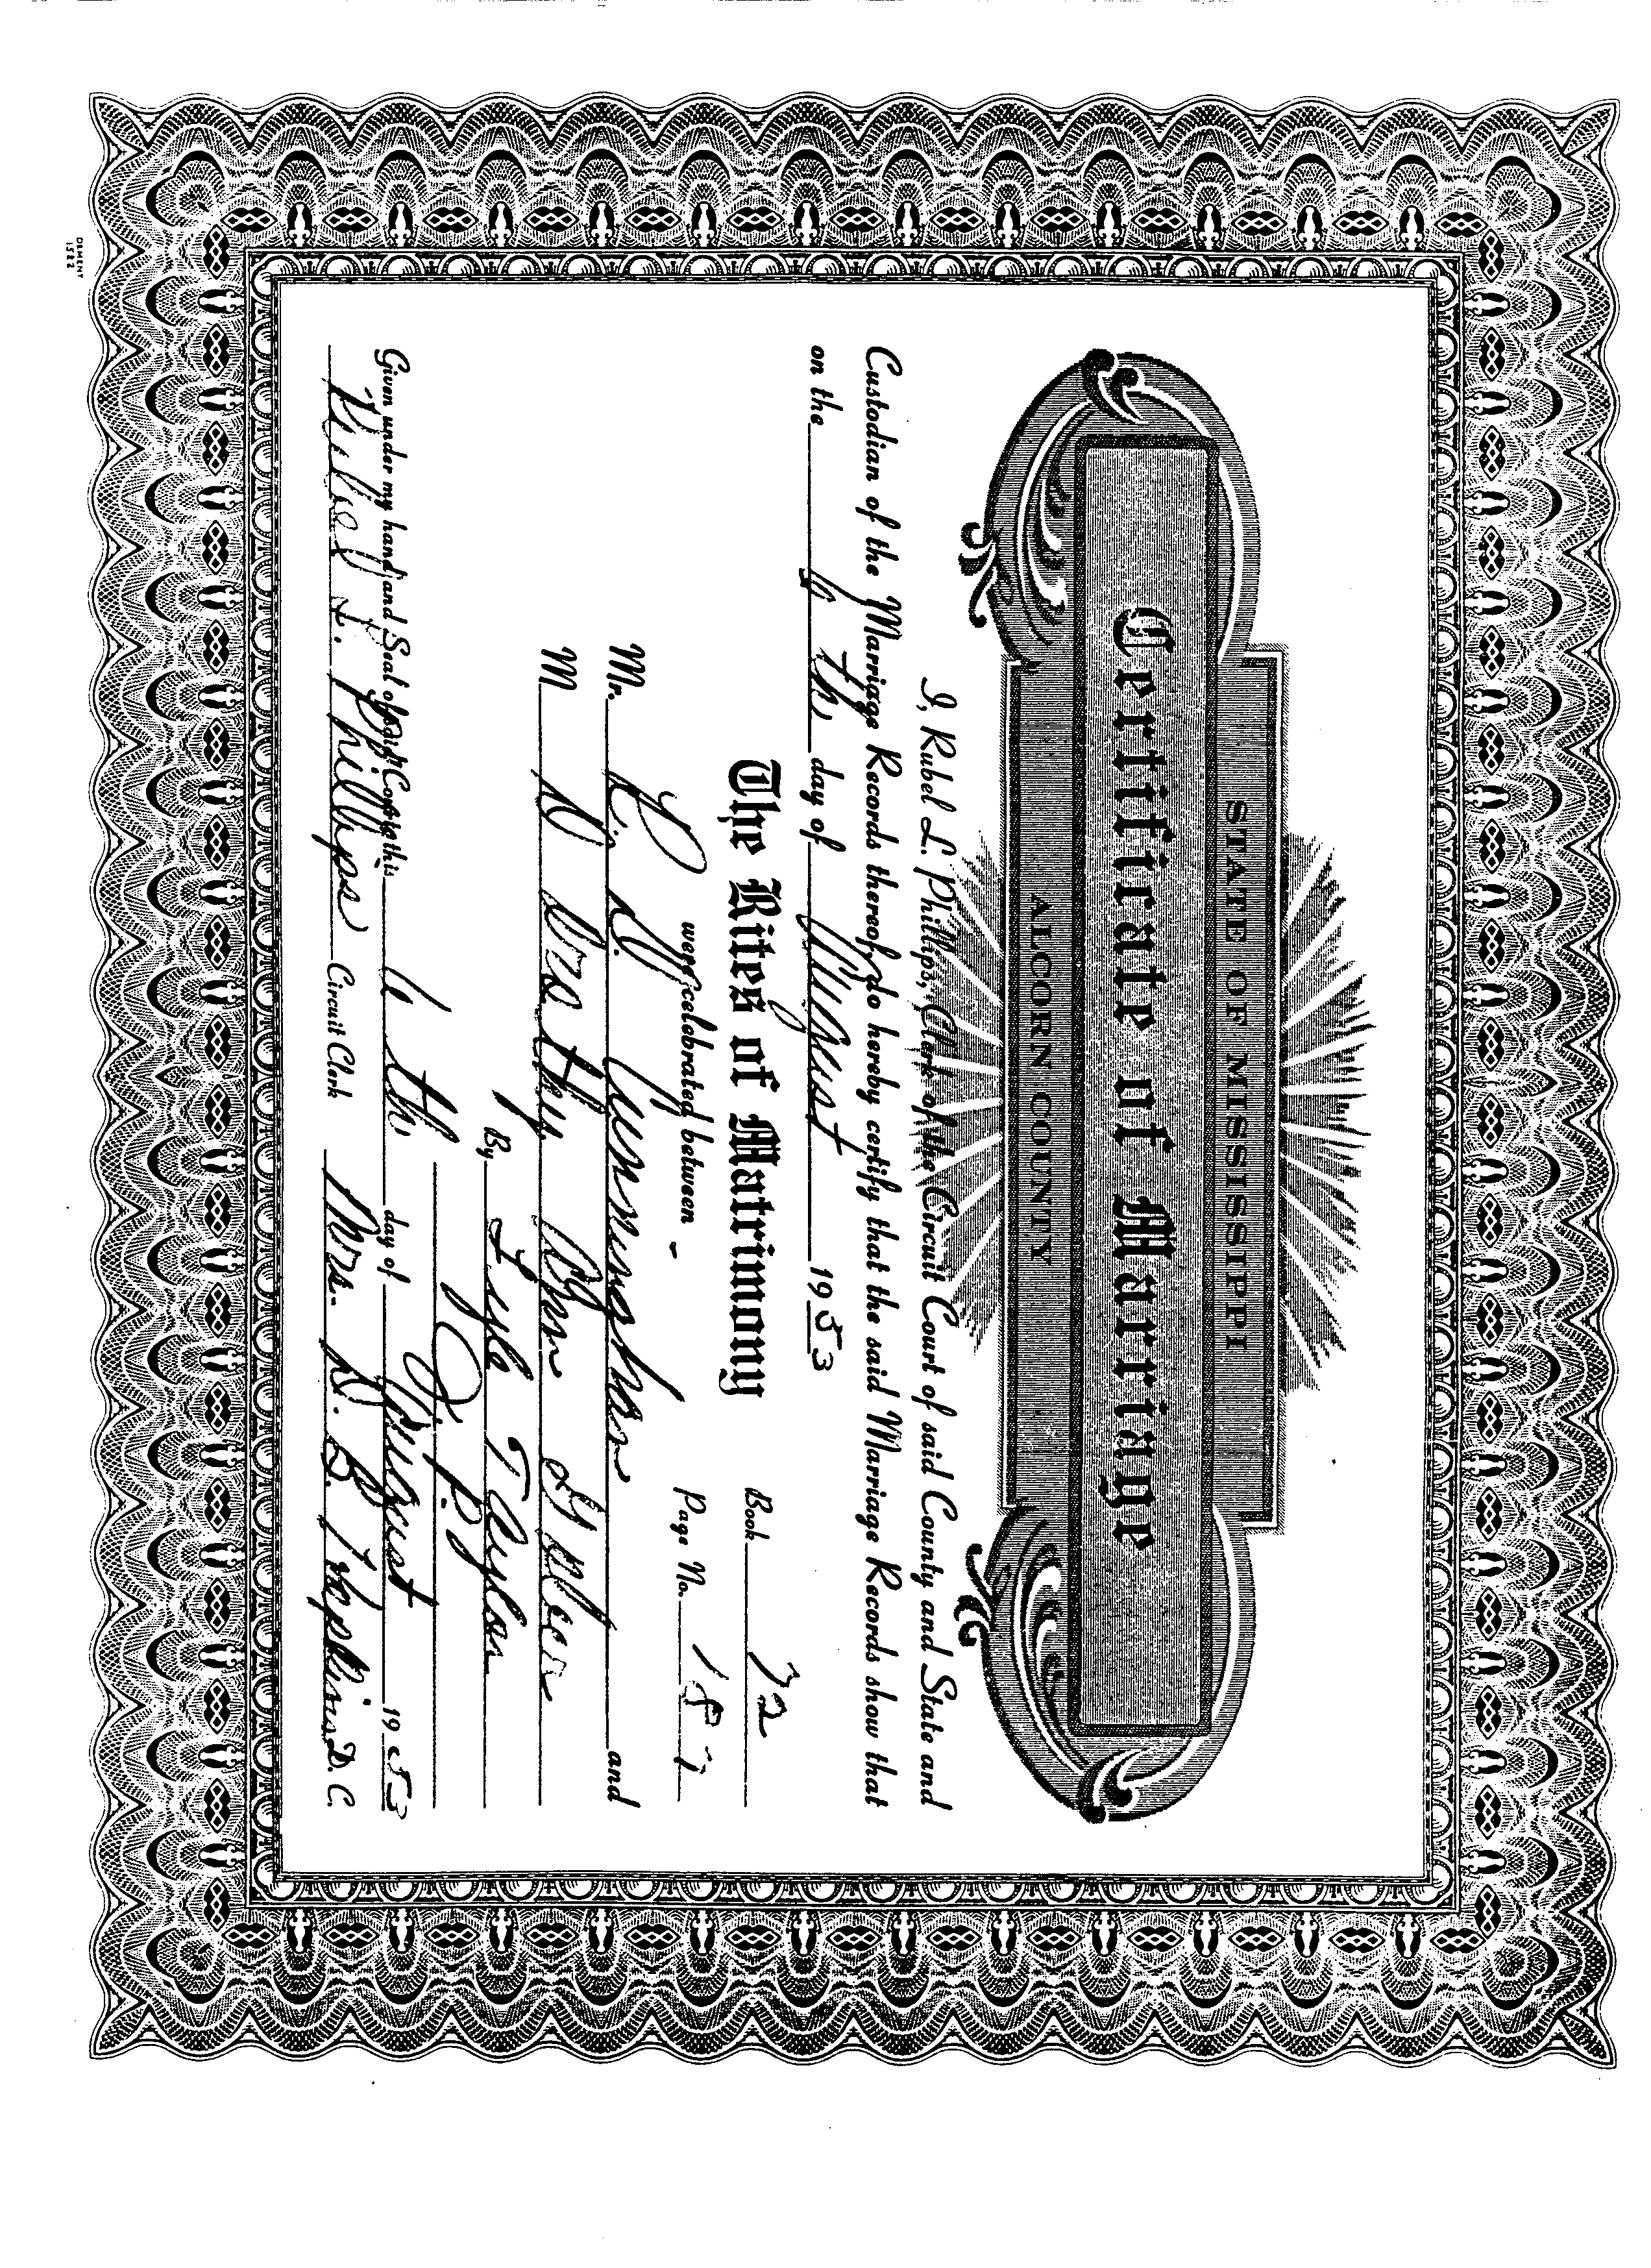 STATE OF MISSISSIPPI
Certificate of Marriage
ALCORN COUNTY
I, Rubel L. Phillips, Clerk of the Circuit Court of said County and State and
Custodian of the Marriage Records thereof, do hereby certify that the said Marriage Records show that
on the 6 th. day of August 1953
The Rites of Matrimony
Book 72
were celebrated between
Page No. 187
Mr. R. D. Cunningham and
M Dorothy Ann
By Lyle Taylor
J. P.
Given under my hand and Seal of said Court this 6 th. day of August 1953
Rubel L. Phillips Circuit Clerk Mrs. D. B. Hopkins D. C.
DEMENT
1522